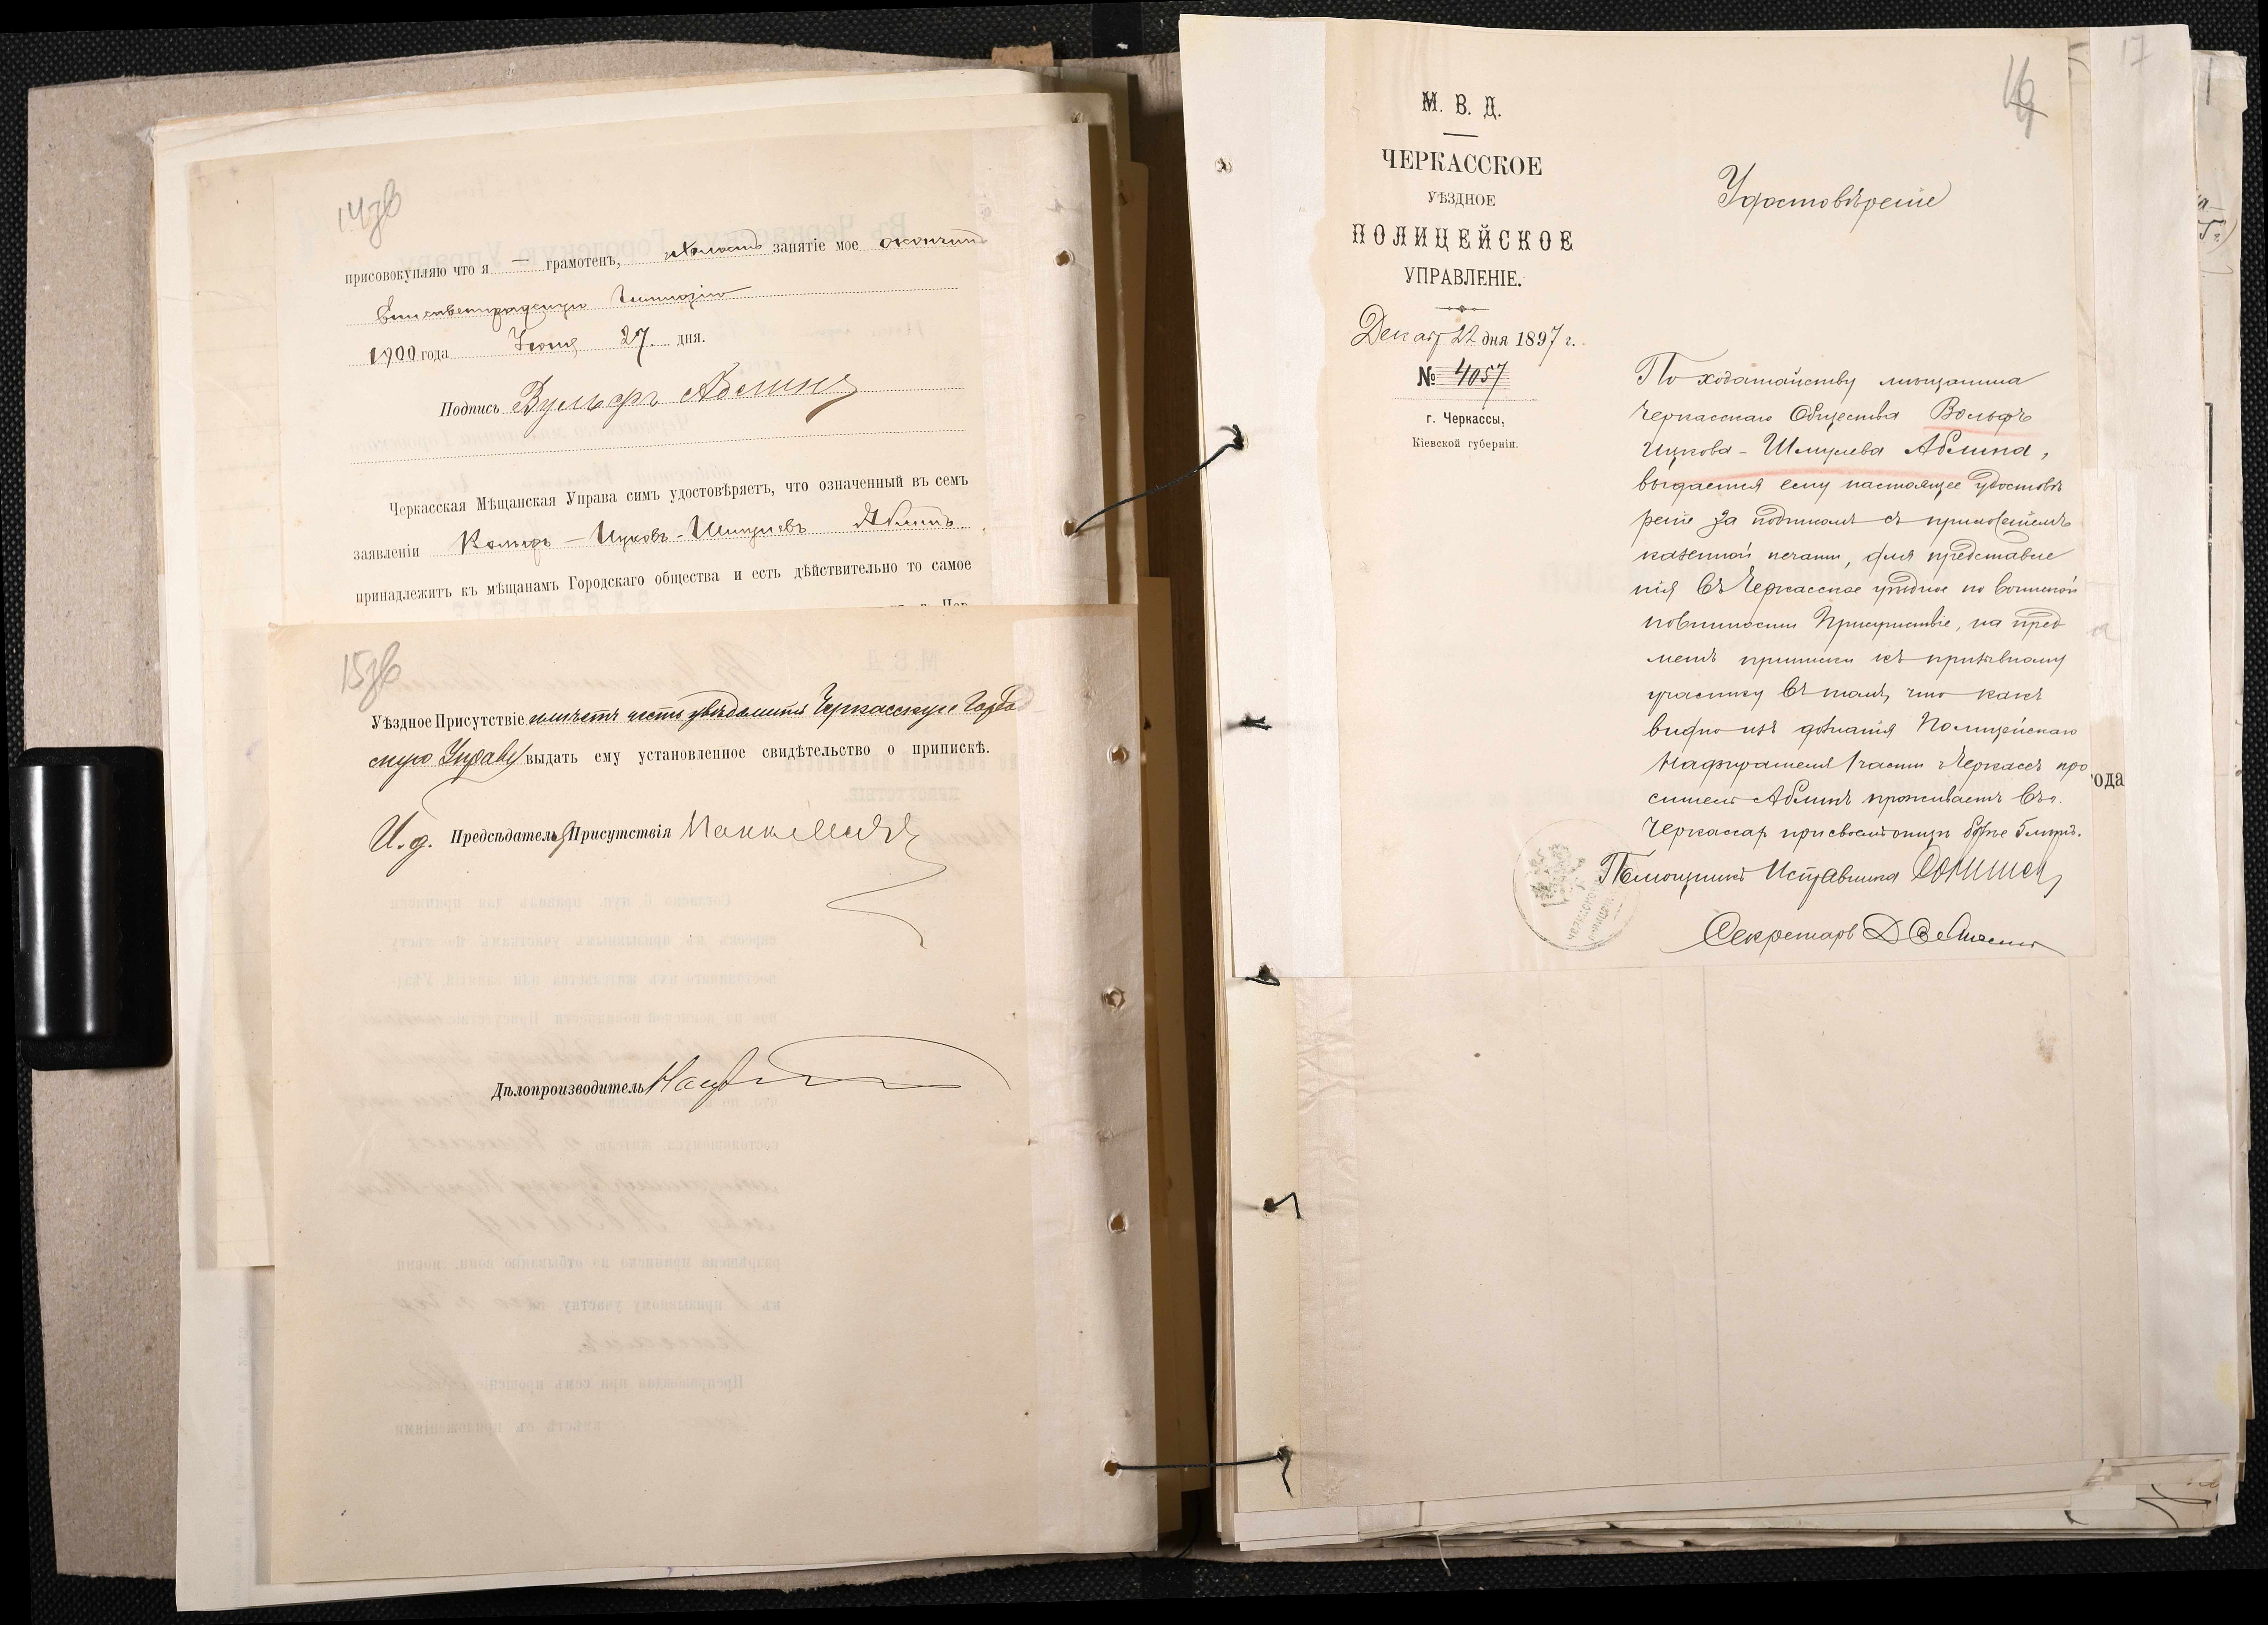 14зв
присовокупляю что я — грамотенъ, холостъ занятіе мое окончилъ
Елисаветградскую Гимназію
1900 года Іюня 27. дня.
Подпись Вульфъ Аблинъ
Черкасская Мѣщанская Управа симъ удостовѣряетъ, что означенный въ семъ
заявленіи Вольфъ - Ицковъ-Шмулевъ Аблинъ
принадлежитъ къ мѣщанамъ Городскаго общества и есть дѣйствительно то самое
15зв
Уѣздное Присутствіе имѣетъ честь увѣдомить Черкасскую Город
скую Управу выдать ему установленное свидѣтельство о припискѣ.
И. д. Предсѣдателя Присутствія
Дѣлопроизводитель
17
16
М. В. Д.
ЧЕРКАССКОЕ
УѢЗДНОЕ
ПОЛИЦЕЙСКОЕ
УПРАВЛЕНІЕ.
Декабр 22 дня 1897 г.
№ 4057
г. Черкассы,
Кіевской губерніи.
Удостовѣреніе
По ходатайству мѣщанина
Черкасскаго Общества Вольфъ
Ицкова - Шмулева Аблина,
выдается ему настоящее удостовѣ
реніе за подписомъ съ приложеніемъ
казенной печати, для представле
нія въ Черкасское уѣздное по воинской
повинности Присутствіе, на пред
метъ приписки къ призывному
участку въ томъ, что какъ
видно изъ дознанія Полицейскаго
Надзирателя 1 части г. Черкассъ про
ситель Аблинъ проживаетъ въ г.
Черкассах при своемъ отцѣ болѣе 5 лѣтъ.
Помощникъ Исправника
Секретарь
ода